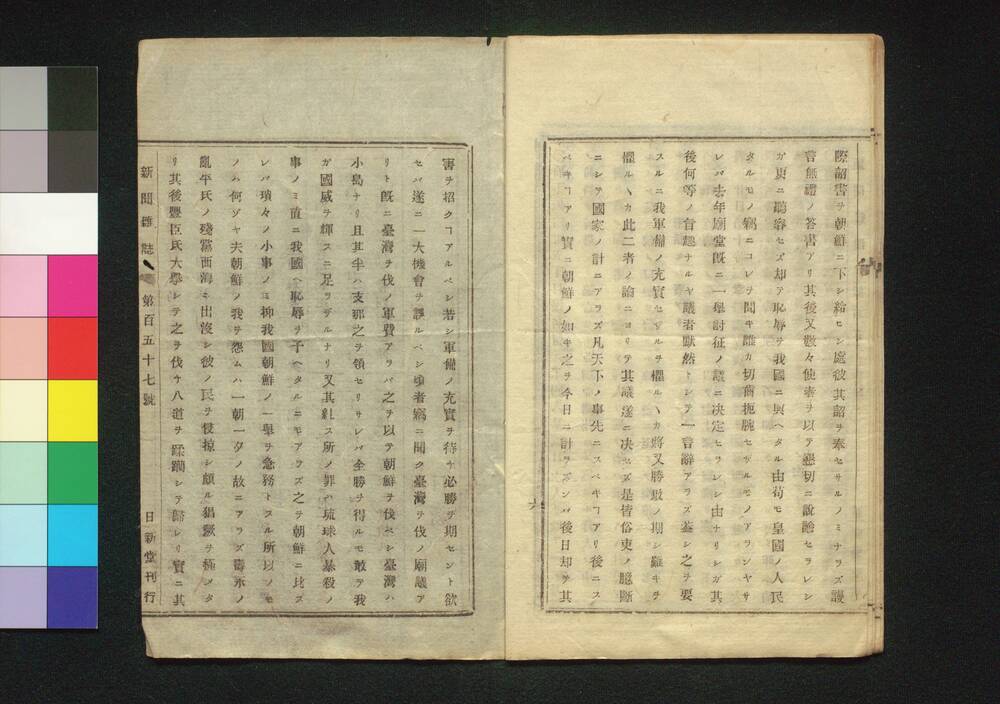 際詔書ヲ朝鮮ニ下シ給ヒシ處彼其詔ヲ奉セサルノミナラズ謾
言無禮ノ答書アリ其後又數々使者ヲ以テ懇切ニ說諭セラレシ
ガ更ニ聽容セズ却テ恥辱ヲ我國ニ與ヘタル由苟モ皇國ノ人民
タルモノ竊ニコレヲ聞キ誰カ切齒扼腕セザルモノアランヤサ
レバ去年廟堂既ニ一舉討征ノ議ニ決定セラレシ由ナリシガ其
後何等ノ旨趣ナルヤ議者默然トシテ一言辭アラズ蓋シ之ヲ要
スルニ我軍備ノ充實セザルヲ懼ルヽカ將又勝敗ノ期シ難キヲ
懼ルヽカ此二者ノ論ニヨリテ其議遂ニ决セズ是皆俗吏ノ臆斷
ニシテ國家ノ計ニアラズ凡天下ノ事先ニスベキヿアリ後ニス
ベキヿアリ實ニ朝鮮ノ如キ之ヲ今日ニ計ラズンバ後日却テ其
六
害ヲ招クヿアルベシ若シ軍備ノ充實ヲ待チ必勝ヲ期セント欲
セバ遂ニ一大機會ヲ誤ルベシ頃者竊ニ聞ク臺灣ヲ伐ノ廟議ア
リト既ニ臺灣ヲ伐ノ軍費アラバ之ヲ以テ朝鮮ヲ伐ベシ臺灣ハ
小島ナリ且其半ハ支那之ヲ領セリサレバ全勝ヲ得ルモ敢テ我
ガ國威ヲ輝スニ足ラザルナリ又其糺ス所ノ罪ハ琉球人暴殺ノ
事ノミ直ニ我國ヘ恥辱ヲ予ヘタルニモアラズ之ヲ朝鮮ニ比ス
レバ瑣々ノ小事ノミ抑我國朝鮮ノ一舉ヲ急務トスル所以ノモ
ノハ何ゾヤ夫朝鮮ノ我ヲ怨ムハ一朝一夕ノ故ニアラズ壽永ノ
亂平氏ノ殘黨西海ニ出沒シ彼ノ民ヲ侵掠シ頗ル猖獗ヲ極メタ
リ其後豐臣氏大擧シテ之ヲ伐チ八道ヲ蹂躙シテ歸レリ實ニ其
新聞雜誌 第百五十七號 日新堂刊行